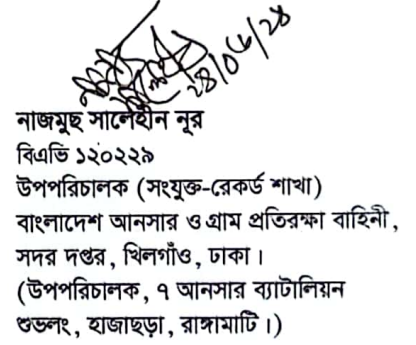 ২৪/০৬/২৪
নাজমুছ সালেহীন নূর
বিএভি ১২০২২৯
উপপরিচালক (সংযুক্ত-রেকর্ড শাখা)
বাংলাদেশ আনসার ও গ্রাম প্রতিরক্ষা বাহিনী,
সদর দপ্তর, খিলগাঁও, ঢাকা।
(উপপরিচালক, ৭ আনসার ব্যাটালিয়ন
শুভলং, হাজাছড়া, রাঙ্গামাটি।)